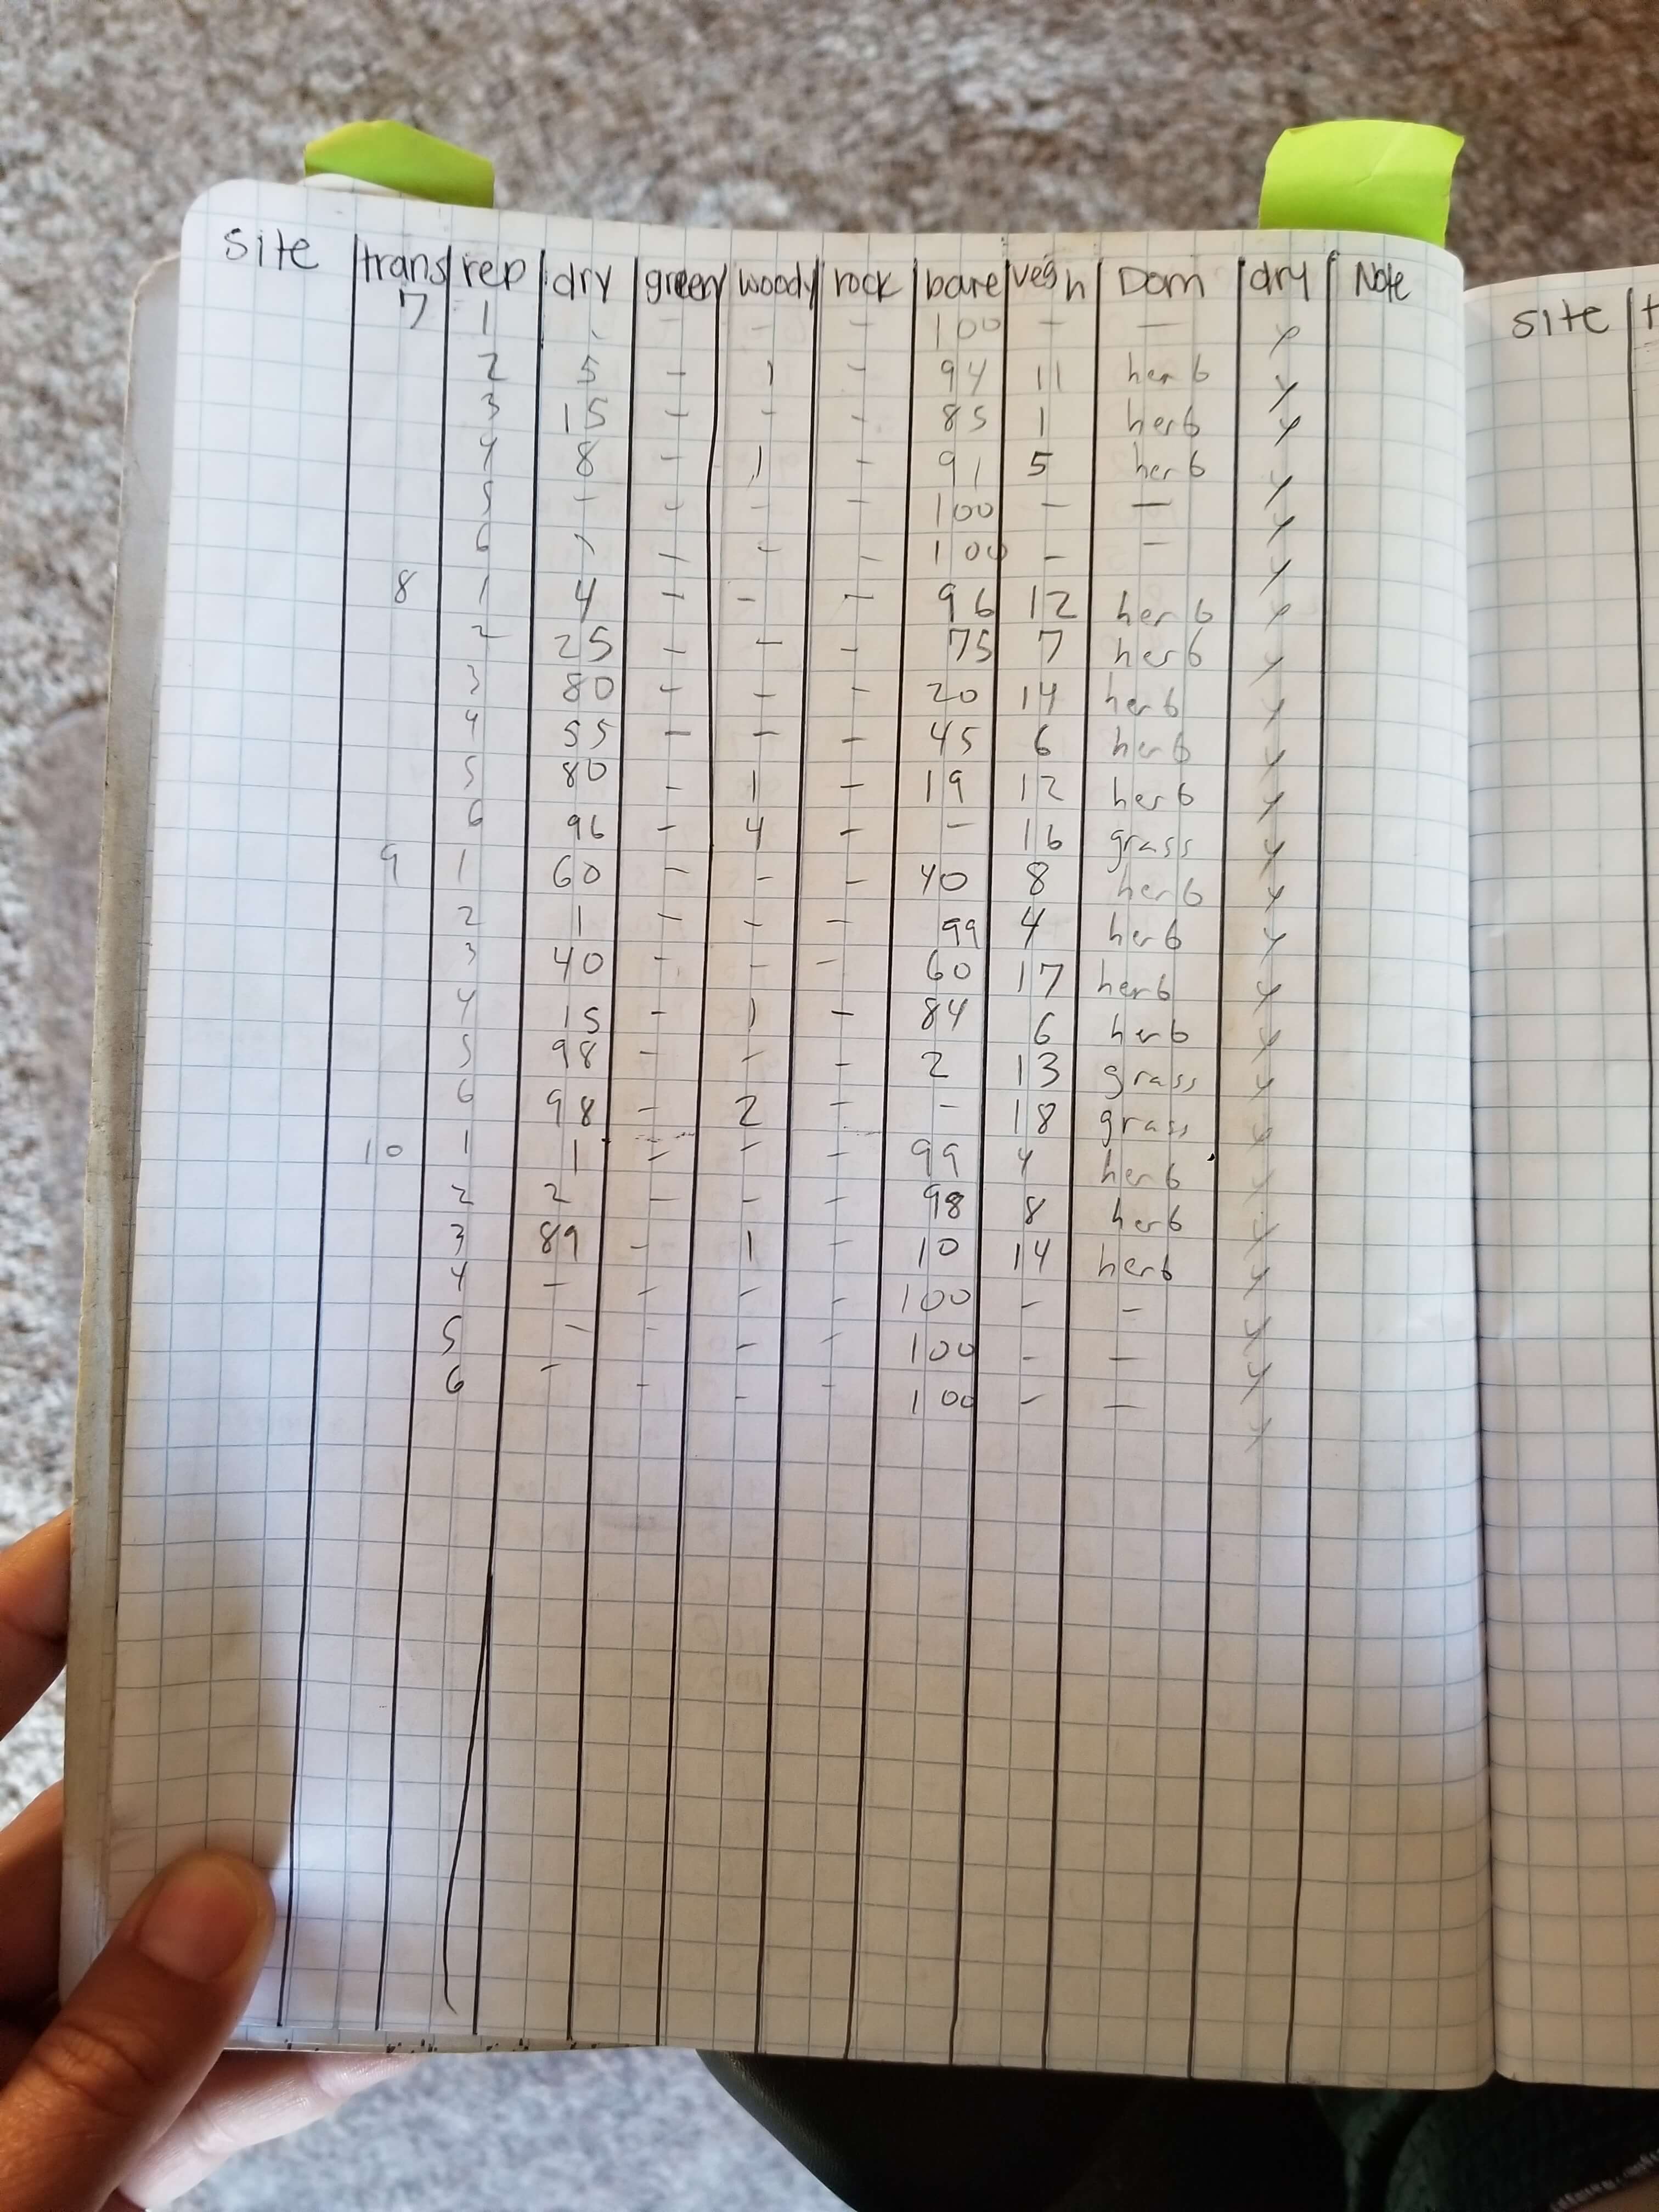 site trans rep dry green woody rock bare veg h Dom dry Note
7 1 - - - - 100 - - y
2 5 - 1 - 94 11 herb y
3 15 - - - 85 1 herb y
4 8 - 1 - 91 5 herb y
5 - - - - 100 - - y
6 - - - - 100 - - y
8 1 4 - - - 96 12 herb y
2 25 - - - 75 7 herb y
3 80 - - - 20 14 herb y
4 55 - - - 45 6 herb y
5 80 - 1 - 19 12 herb y
6 96 - 4 - - 16 grass y
9 1 60 - - - 40 8 herb y
2 1 - - - 99 4 herb y
3 40 - - - 60 17 herb y
4 15 - 1 - 84 6 herb y
5 98 - - - 2 13 grass y
6 98 - 2 - - 18 grass y
10 1 1 - - - 99 4 herb y
2 2 - - - 98 8 herb y
3 89 - 1 - 10 14 herb y
4 - - - - 100 - - y
5 - - - - 100 - - y
6 - - - - 100 - - y
site t